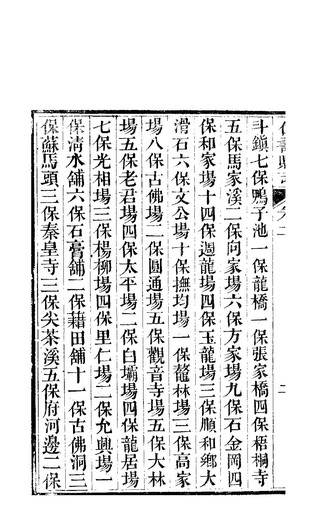 斗鎮七保鴨子池一保龍橋一保張家橋四保梧桐寺
五保馬家溪二保向家場六保方家場九保石金岡四
保和家場十四保迴龍場四保玉龍場三保順和鄉大
滑石六保文公場十保撫均場一保鰲林場三保高家
場八保古佛場二保圓通場五保觀音寺場五保大林
場五保老君場四保太平場二保白壩場四保龍居場
七保光相場三保楊柳場四保里仁場二保允興場一
保清水舖六保石膏舖二保藉田舖十一保古佛洞三
保蘇馬頭三保秦皇寺三保尖茶溪五保府河邊二保